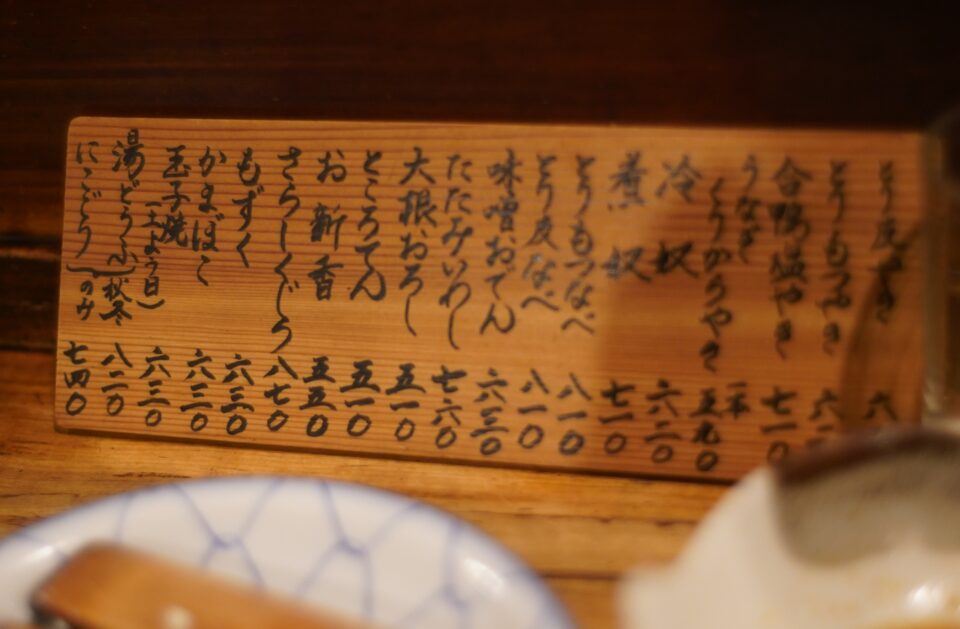 とり皮やき 六
とりもつやき 六一
合鴨塩やき 七一〇
うなぎくりからやき 一本 五九〇
冷奴 六二〇
煮奴 七一〇
とりもつなべ 八一〇
とり皮なべ 八一〇
味噌おでん 六三〇
たたみいわし 七六〇
大根おろし 五一〇
ところてん 五一〇
お新香 五五〇
さらしくじら 八七〇
もずく 六三〇
かまぼこ 六三〇
玉子焼(土よう日) 六三〇
湯どうふ 八二〇
にこごり 七四〇
秋冬のみ